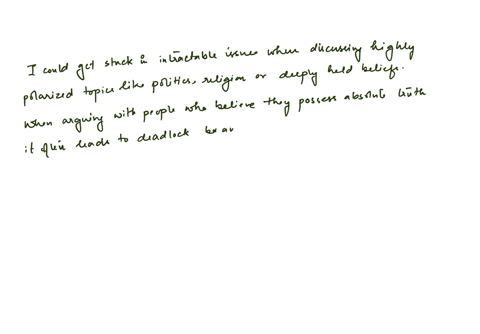 I could get stuck in intractable issues when discussing highly
polarized topics like politics, religion or deeply held beliefs.
When arguing with people who believe they possess absolute truth
it often leads to deadlock